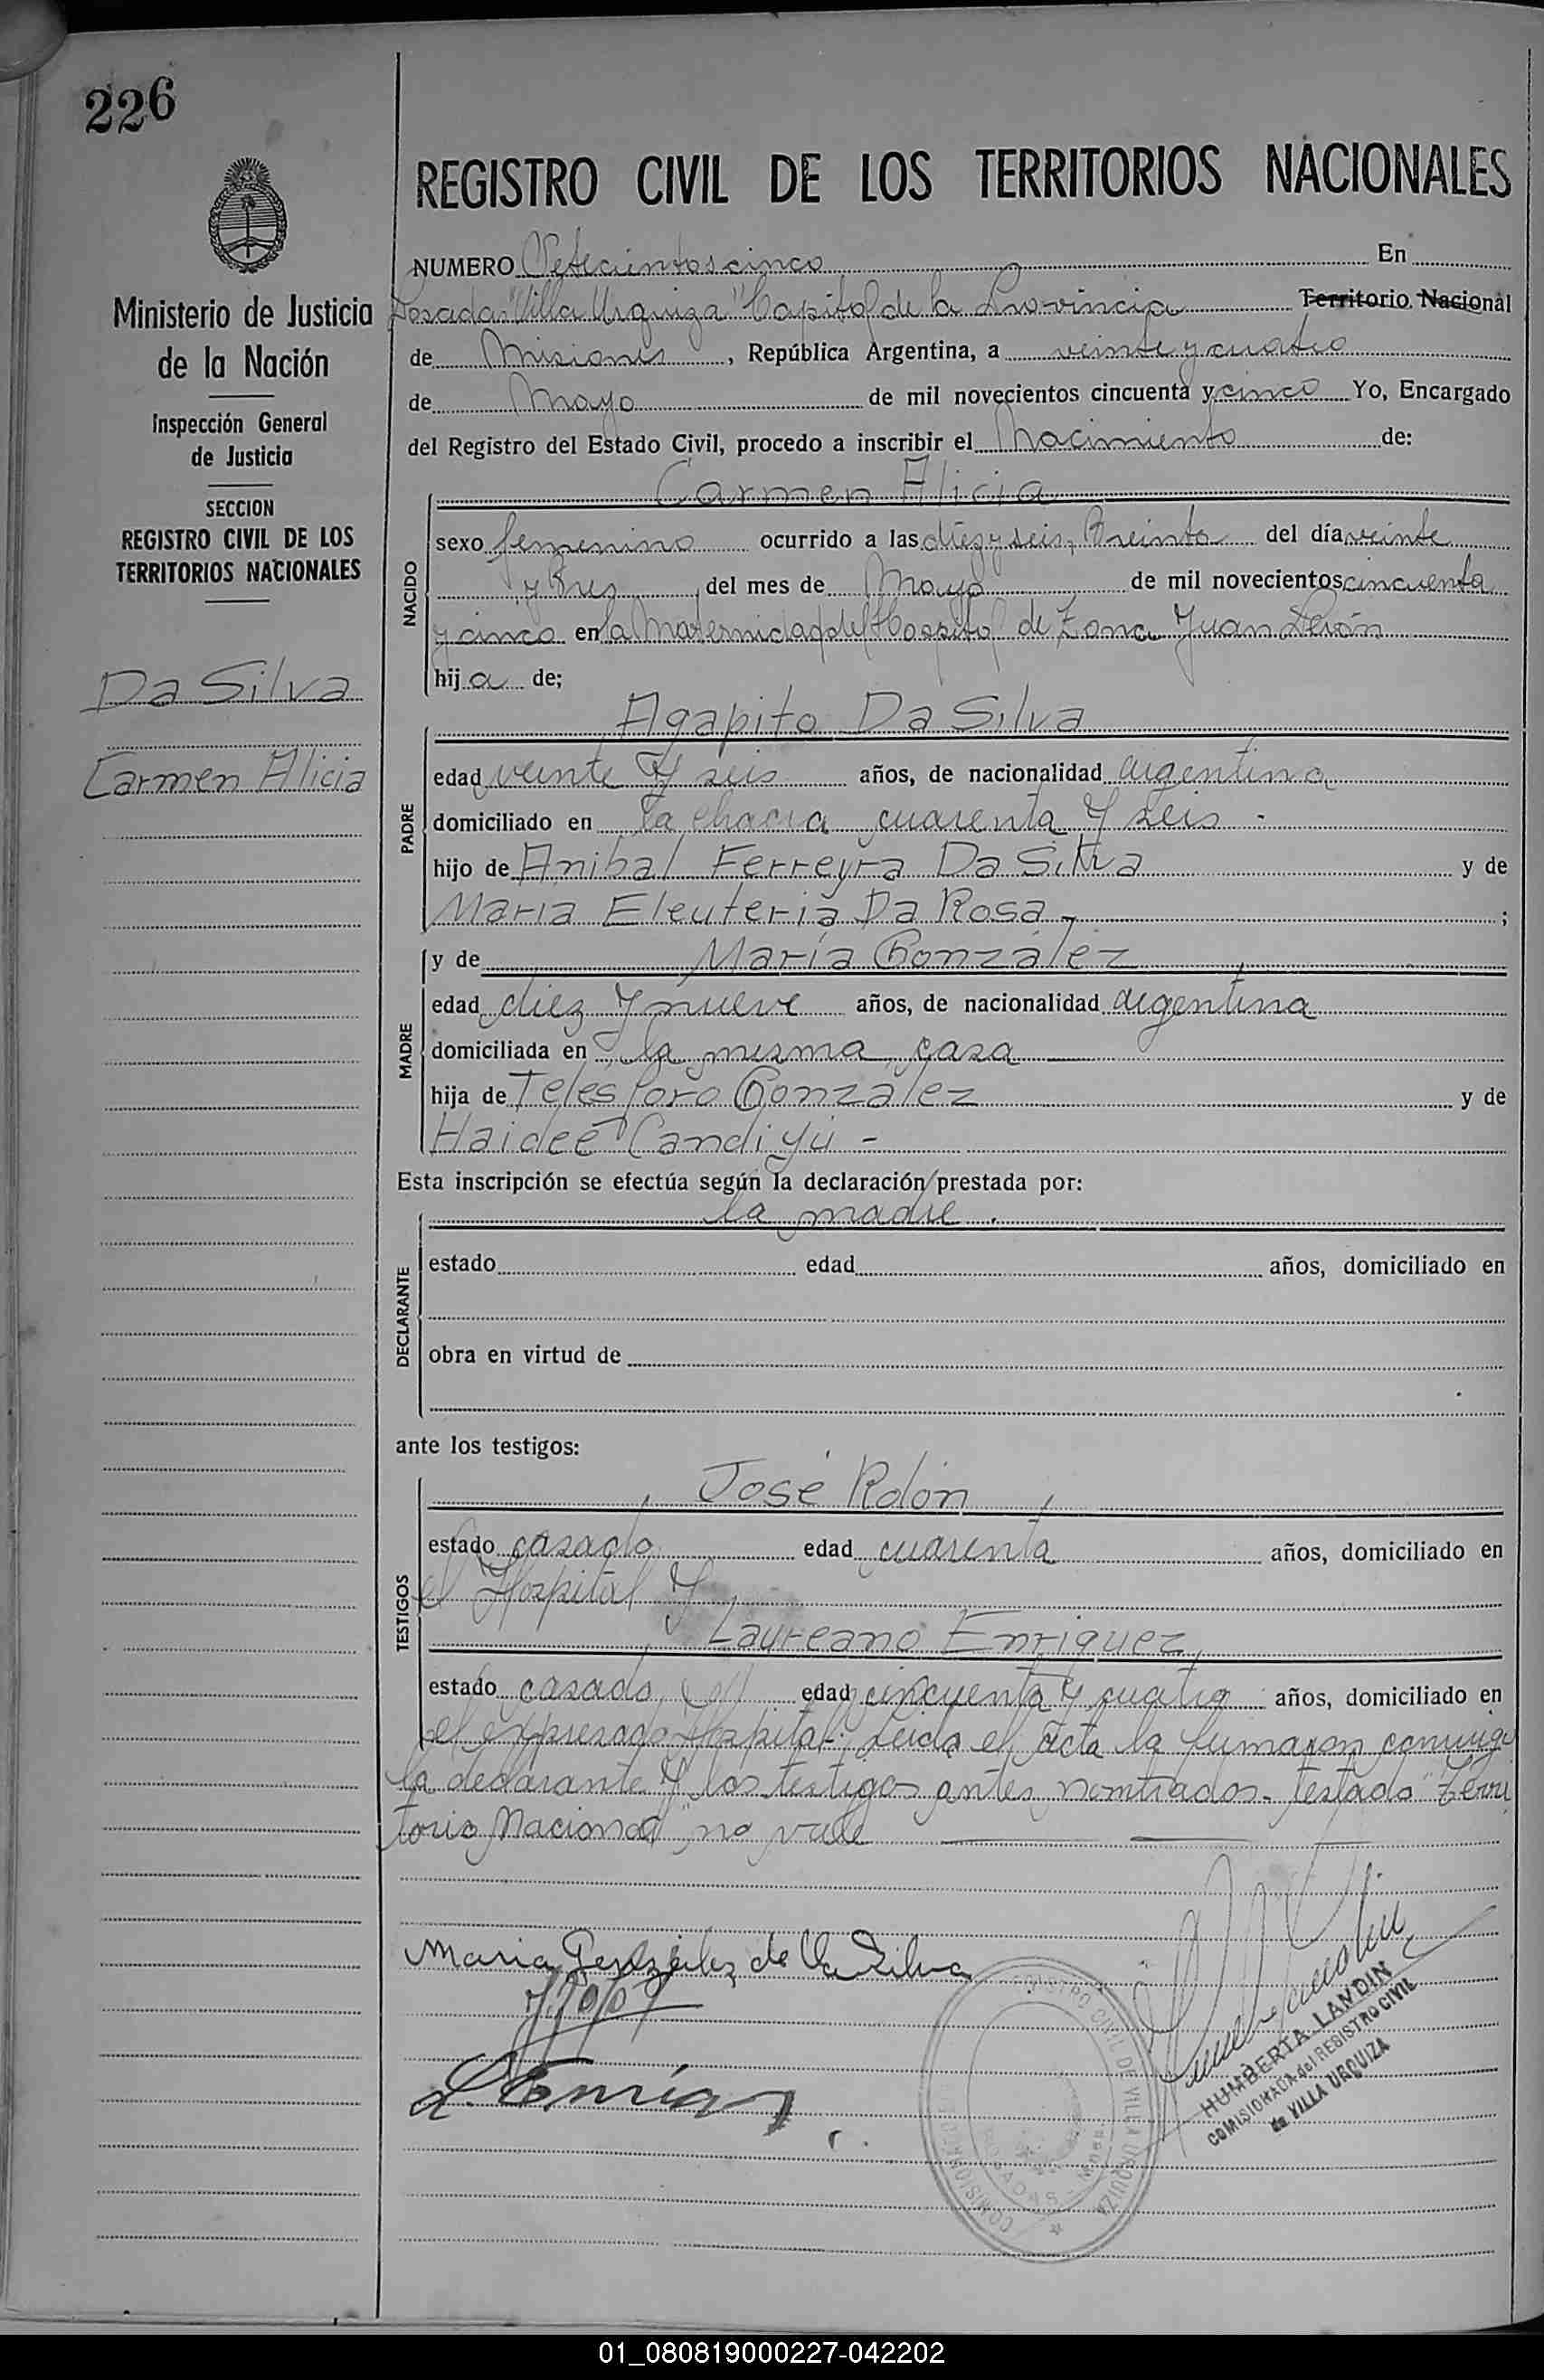 226
REGISTRO CIVIL DE LOS TERRITORIOS NACIONALES
Ministerio de Justicia
de la Nación
Inspección General
de Justicia
SECCION
REGISTRO CIVIL DE LOS
TERRITORIOS NACIONALES
Da Silva
Carmen Alicia
NUMERO Setecientos cinco En
Posadas "Villa Urquiza" Capital de la Provincia Territorio Nacional
de Misiones, República Argentina, a veinte y cuatro
de Mayo de mil novecientos cincuenta y cinco Yo, Encargado
del Registro del Estado Civil, procedo a inscribir el Nacimiento de:
NACIDO
Carmen Alicia
sexo femenino ocurrido a las diez y seis, treinta del día veinte
y tres del mes de Mayo de mil novecientos cincuenta
y cinco en la Maternidad del Hospital de Zona Juan Perón
hija de;
PADRE
Agapito Da Silva
edad veinte y seis años, de nacionalidad argentina
domiciliado en la chacra cuarenta y seis -
hijo de Anibal Ferreyra Da Silva y de
Maria Eleuteria Da Rosa - ;
y de María González
MADRE
edad diez y nueve años, de nacionalidad argentina
domiciliada en la misma casa
hija de Telesforo González y de
Haideé Candiyú -
Esta inscripción se efectúa según la declaración prestada por:
la madre.
DECLARANTE
estado edad años, domiciliado en
obra en virtud de
ante los testigos:
TESTIGOS
José Rolón,
estado casado edad cuarenta años, domiciliado en
el Hospital y
Laureano Enriquez,
estado casado, edad cincuenta y cuatro años, domiciliado en
el expresado Hospital. Leida el acta la firmaron conmigo
la declarante y los testigos antes nombrados. Testado "Terri
torio Nacional" no vale
Maria González de Da Silva
HUMBERTA LANDIN
COMISIONADA del REGISTRO CIVIL
de VILLA URQUIZA
REGISTRO CIVIL DE VILLA URQUIZA
01_080819000227-042202